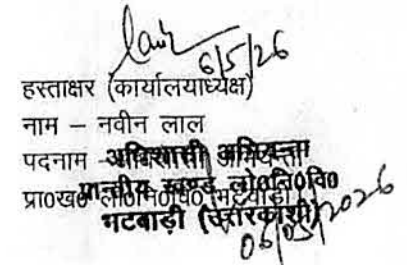 6/5/26
हस्ताक्षर (कार्यालयाध्यक्ष)
नाम – नवीन लाल
पदनाम – अधिशासी अभियन्ता
प्रा०ख० लो०नि०वि० भटवाड़ी
अधिशासी अभियन्ता
प्रान्तीय खण्ड लो०नि०वि०
भटवाड़ी (उत्तरकाशी)
06/05/2026